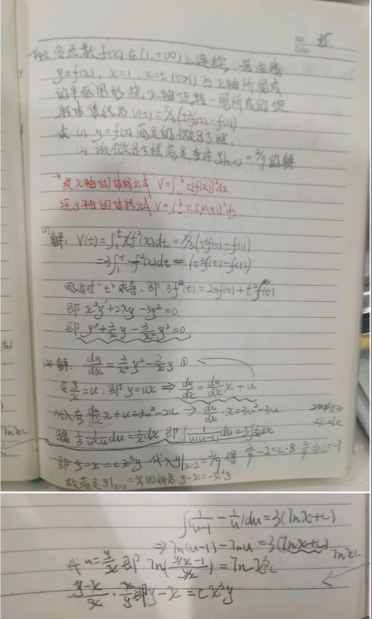 No. 85
Date
T12. 令函数f(x)在[1,+∞)上连续,若由曲线
y=f(x), x=1, x=t(t>1)与x轴所围成
的平面图形绕x轴旋转一周所成的旋
转体体积为V(t)=π/3(t²f(t)-f(1))
求(1) y=f(x)满足的微分方程.
(2) 该微分方程满足条件y|x=2=2/9的解
绕x轴的体积公式 V=∫ₐᵇ π[f(x)]²dx
(1)解: V(t)=∫₁ᵗ πf²(x)dx=π/3(t²f(t)-f(1))
=3∫₁ᵗ f²(x)dx=(t²f(t)-f(1))
两边对"t"求导,即 3f²(t)=2tf(t)+t²f'(t)
即 x²y'+2xy-3y²=0
即 y'+2/x y-3/x² y²=0
(2)解: dy/dx=3/x² y²-2/x y ①
令y/x=u, 即y=ux ⇒ dy/dx=du/dx x+u
代入① du/dx x+u=3u²-2u ⇒ du/dx·x=3u²-3u
即∫1/u(u-1) du=3∫1/x dx
即 y-x=cx³y 代入y|x=2=2/9得 2/9-2=c·8·2/9⇒c=-1
y-x=-x³y
∫(1/(u-1)-1/u)du=3(lnx+c)
⇒ ln(u-1)-lnu=3(lnx+c)
lnx³c
将u=y/x即 ln((y/x-1)/(y/x))=lnx³c
(y-x)/x·x/y即y-x=cx³y